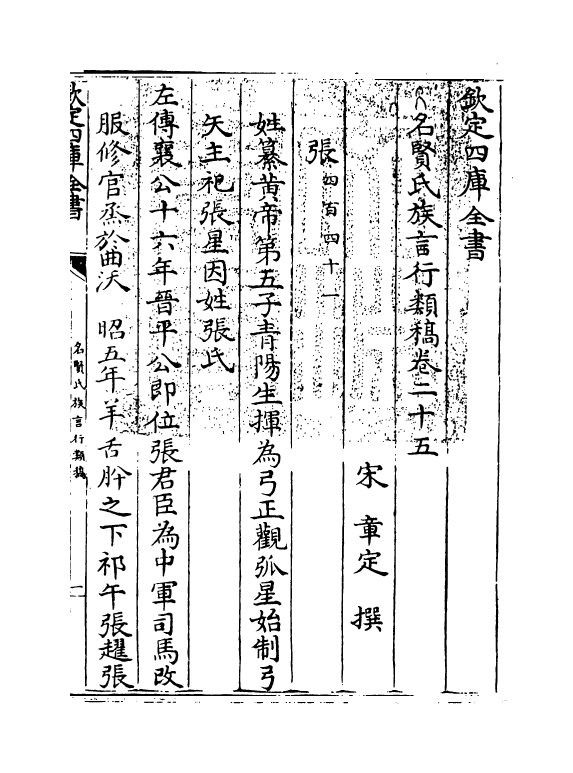 欽定四庫全書
名賢氏族言行類稿卷二十五
宋 章定 撰
張四百四十一
姓纂黄帝第五子青陽生揮為弓正觀弧星始制弓
矢主祀張星因姓張氏
左傳襄公十六年晉平公即位張君臣為中軍司馬改
服修官烝於曲沃 昭五年羊舌肸之下祁午張趯張
欽定四庫全書
名賢氏族言行類稿
一